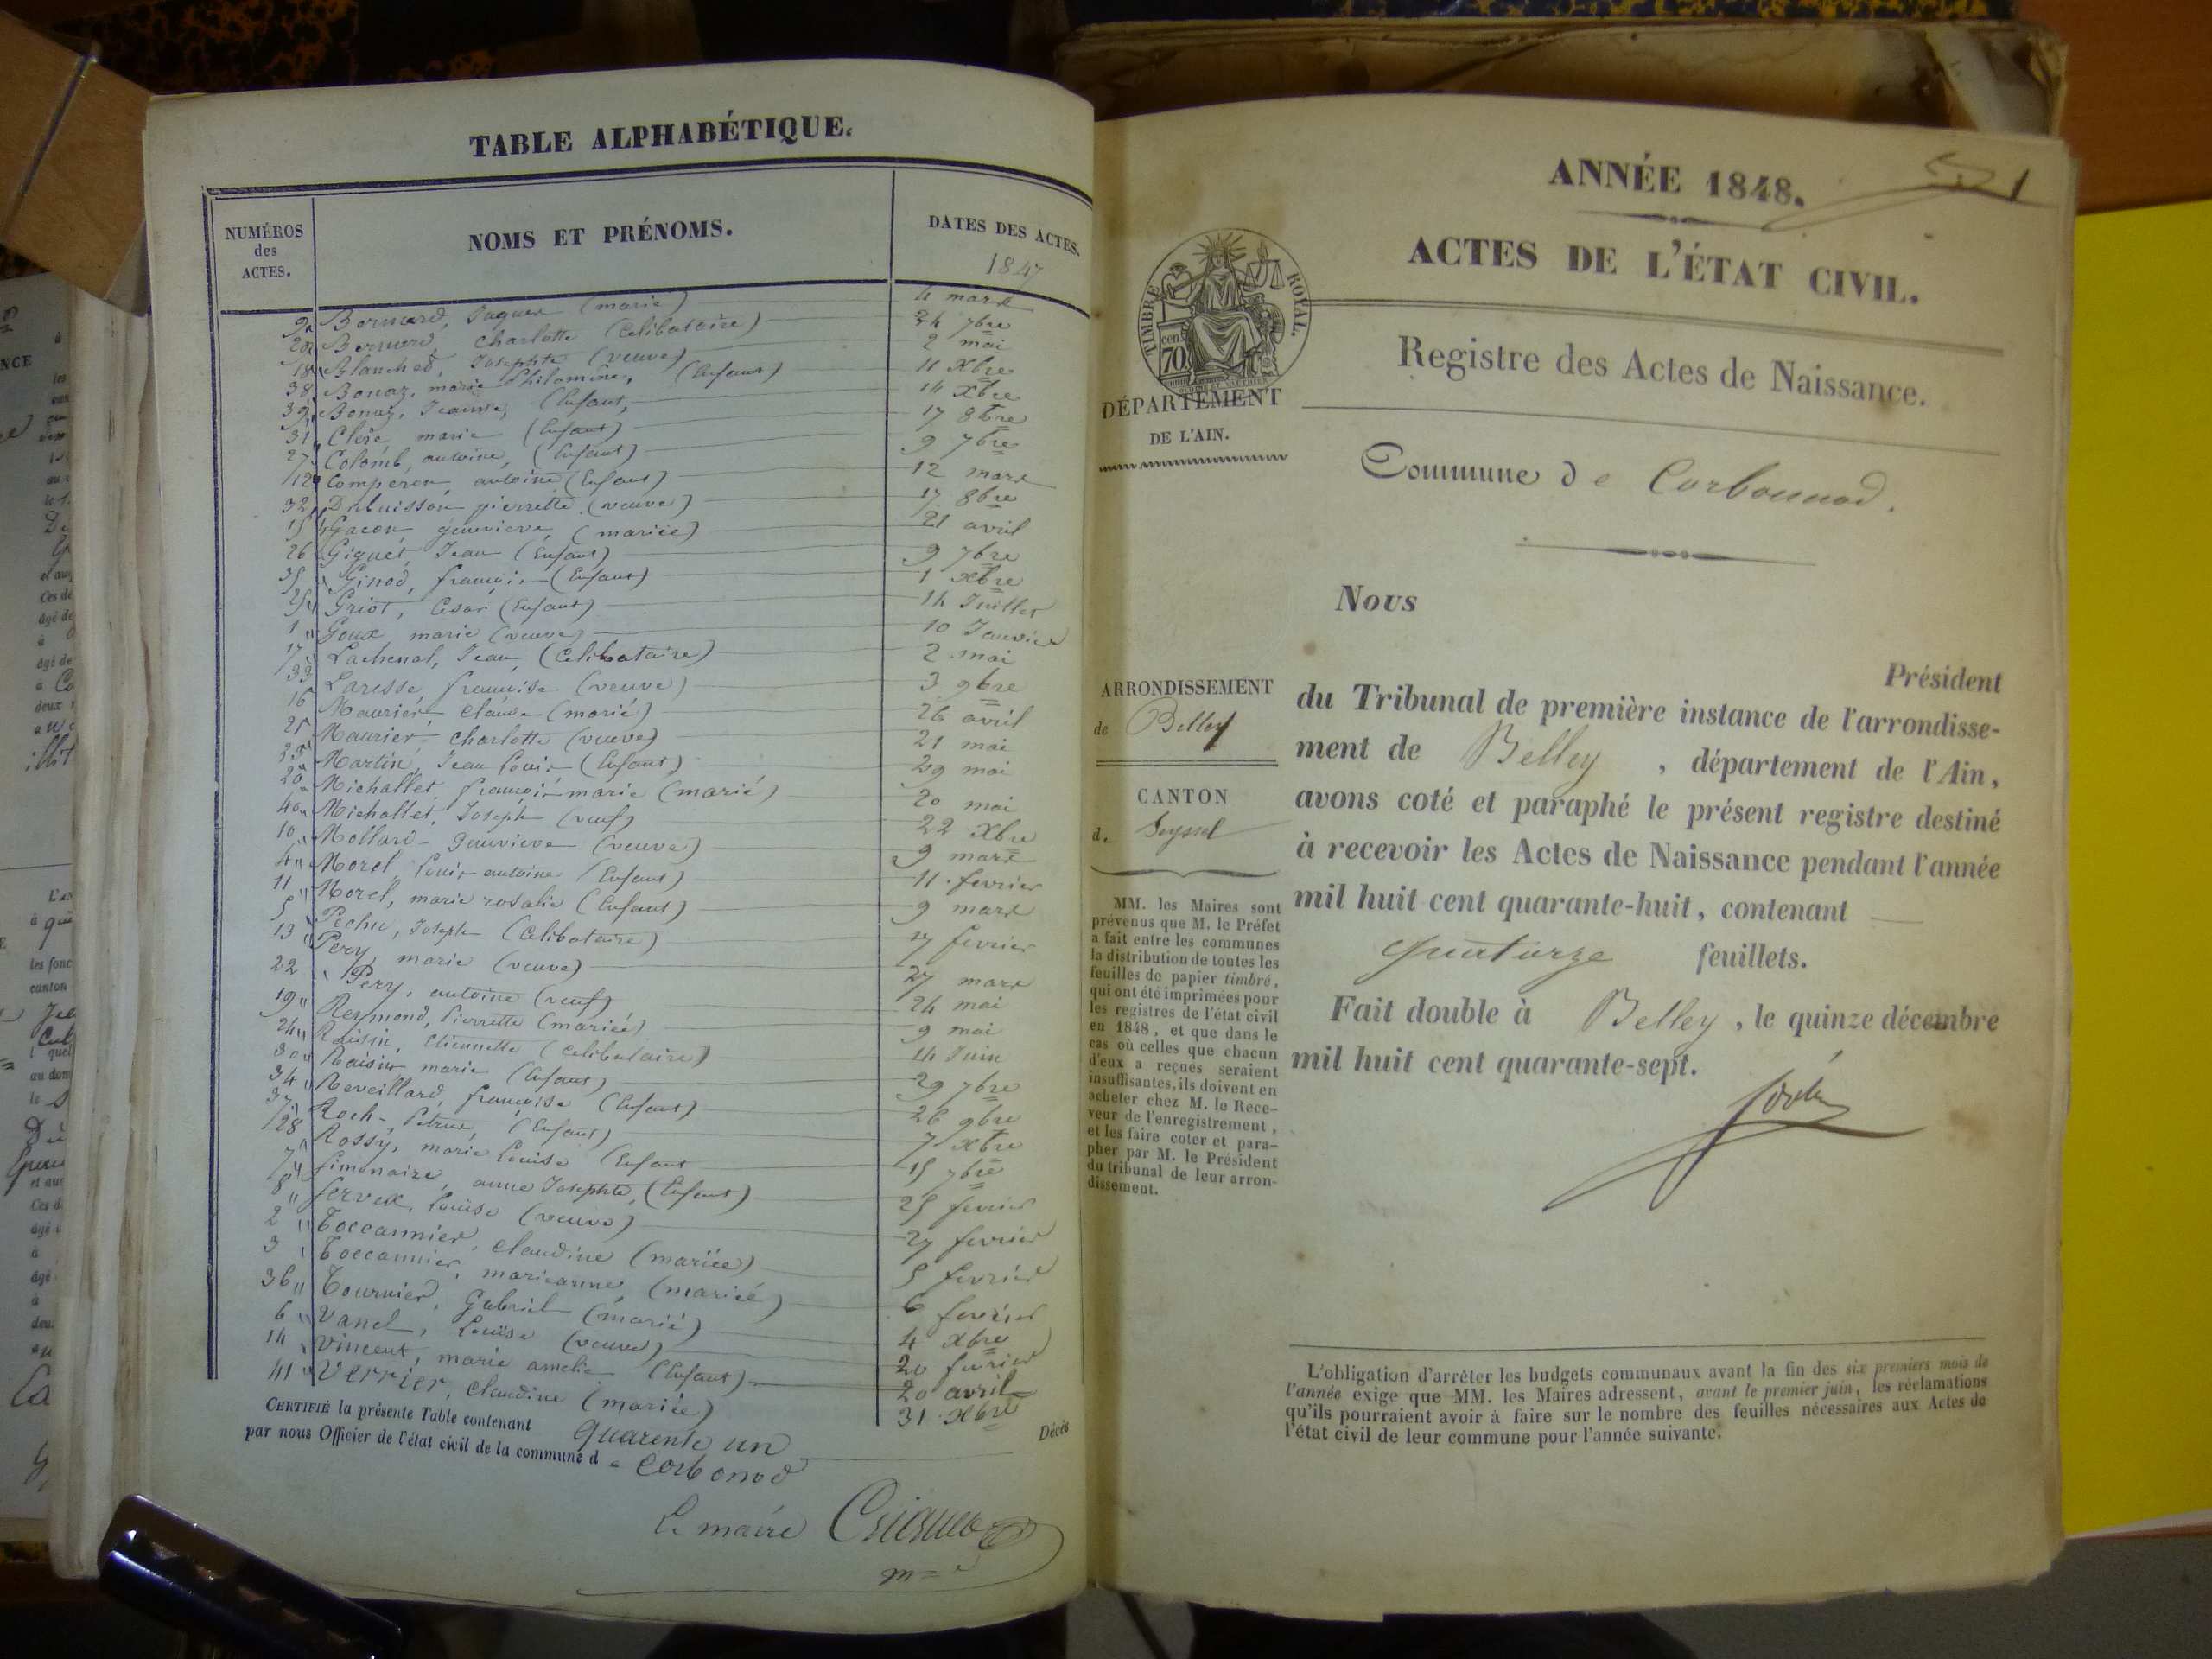 TABLE ALPHABÉTIQUE.
NUMÉROS
des
ACTES.
NOMS ET PRÉNOMS.
DATES DES ACTES.
1847
9 Bernard, Jaques (marié) 4 mars
Bernard, Charlotte (Celibataire) 24 7bre
18 Blanched, Josephte (veuve) 2 mai
38 Bonaz, marie Philomène, (Enfant) 11 Xbre
39 Bonaz, Jeanne, (Enfant, 14 Xbre
31 marie (Enfant) 17 8bre
27 Colomb, antoine, (Enfant) 9 7bre
12 Comperon antoine (Enfant) 12 mars
32 Dubuisson pierrette (veuve) 17 8bre
15 Gacon genevieve, (mariée) 21 avril
26 Giguet Jean (Enfant) 9 7bre
35 Ginod, françois (Enfant) 1 xbre
25 Griot, César (Enfant) 14 Juillet
1 Goux marie (veuve) 10 Janvier
17 Lachenal, Jean, (Celibataire) 2 mai
33 Laresse, françoise (veuve) 3 9bre
16 Maurier, Claude (marié) 26 avril
21 Maurier, Charlotte (veuve) 21 mai
23 Martin, Jean Louis (Enfant) 29 mai
20 Michallet, françois marie (marié) 20 mai
40 Michallet, Joseph (veuf) 22 Xbre
10 Mollard genvieve (veuve) 9 mars
4 Morel, Louis antoine (Enfant) 11 fevrier
11 Morel, marie rosalie (Enfant) 9 mars
5 Pechu, Joseph (Celibataire) 17 fevrier
13 Pery, marie (veuve) 27 mars
22 Pery, antoine (veuf) 24 mai
19 Reymond, Pierrette (mariée) 9 mai
24 Raisin, Etiennette (Celibataire) 14 Juin
30 Raisin marie (Enfant) 29 7bre
34 Reveillard, françoise (Enfant) 26 9bre
37 Roch, (Enfant) 7 xbre
28 Rossy, marie Louise (Enfant 15 7bre
7 Simonaire, anne Josephte, (Enfant) 25 fevrier
8 Servex, Louise (veuve) 27 fevrier
2 Toccannier, Claudine (mariée) 5 fevrier
3 Toccannier, marieanne, (mariée) 6 fevrier
36 Tournier, Gabriel (marié) 4 xbre
6 Vanel, Louïse (veuve) 20 fevrier
14 Vincent, marie amelie (Enfant) 20 avril
41 Verrier, Claudine (mariée) 31 Xbre
Décès
CERTIFIÉ la présente Table contenant quarente un
par nous Officier de l'état civil de la commune de Corbonod
Le maire
ANNÉE 1848.
1
ACTES DE L'ÉTAT CIVIL.
TIMBRE ROYAL.
cen
70
Registre des Actes de Naissance.
DÉPARTEMENT
DE L'AIN.
Commune de Corbonod.
Nous
Président
du Tribunal de première instance de l'arrondisse-
ment de Belley, département de l'Ain,
avons coté et paraphé le présent registre destiné
à recevoir les Actes de Naissance pendant l'année
mil huit cent quarante-huit, contenant
quatorze feuillets.
Fait double à Belley, le quinze décembre
mil huit cent quarante-sept.
ARRONDISSEMENT
de Belley
CANTON
de Seyssel
MM. les Maires sont
prévenus que M. le Préfet
a fait entre les communes
la distribution de toutes les
feuilles de papier timbré,
qui ont été imprimées pour
les registres de l'état civil
en 1848, et que dans le
cas où celles que chacun
d'eux a reçues seraient
insuffisantes, ils doivent en
acheter chez M. le Rece-
veur de l'enregistrement,
et les faire coter et para-
pher par M. le Président
du tribunal de leur arron-
dissement.
L'obligation d'arrêter les budgets communaux avant la fin des six premiers mois de
l'année exige que MM. les Maires adressent, avant le premier juin, les réclamations
qu'ils pourraient avoir à faire sur le nombre des feuilles nécessaires aux Actes de
l'état civil de leur commune pour l'année suivante.